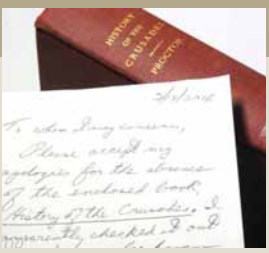 HISTORY
OF THE
CRUSADES
PROCTOR
To whom I may concern,
Please accept my
apologies for the absence
of the enclosed book,
History of the Crusades. I
apparently checked it out